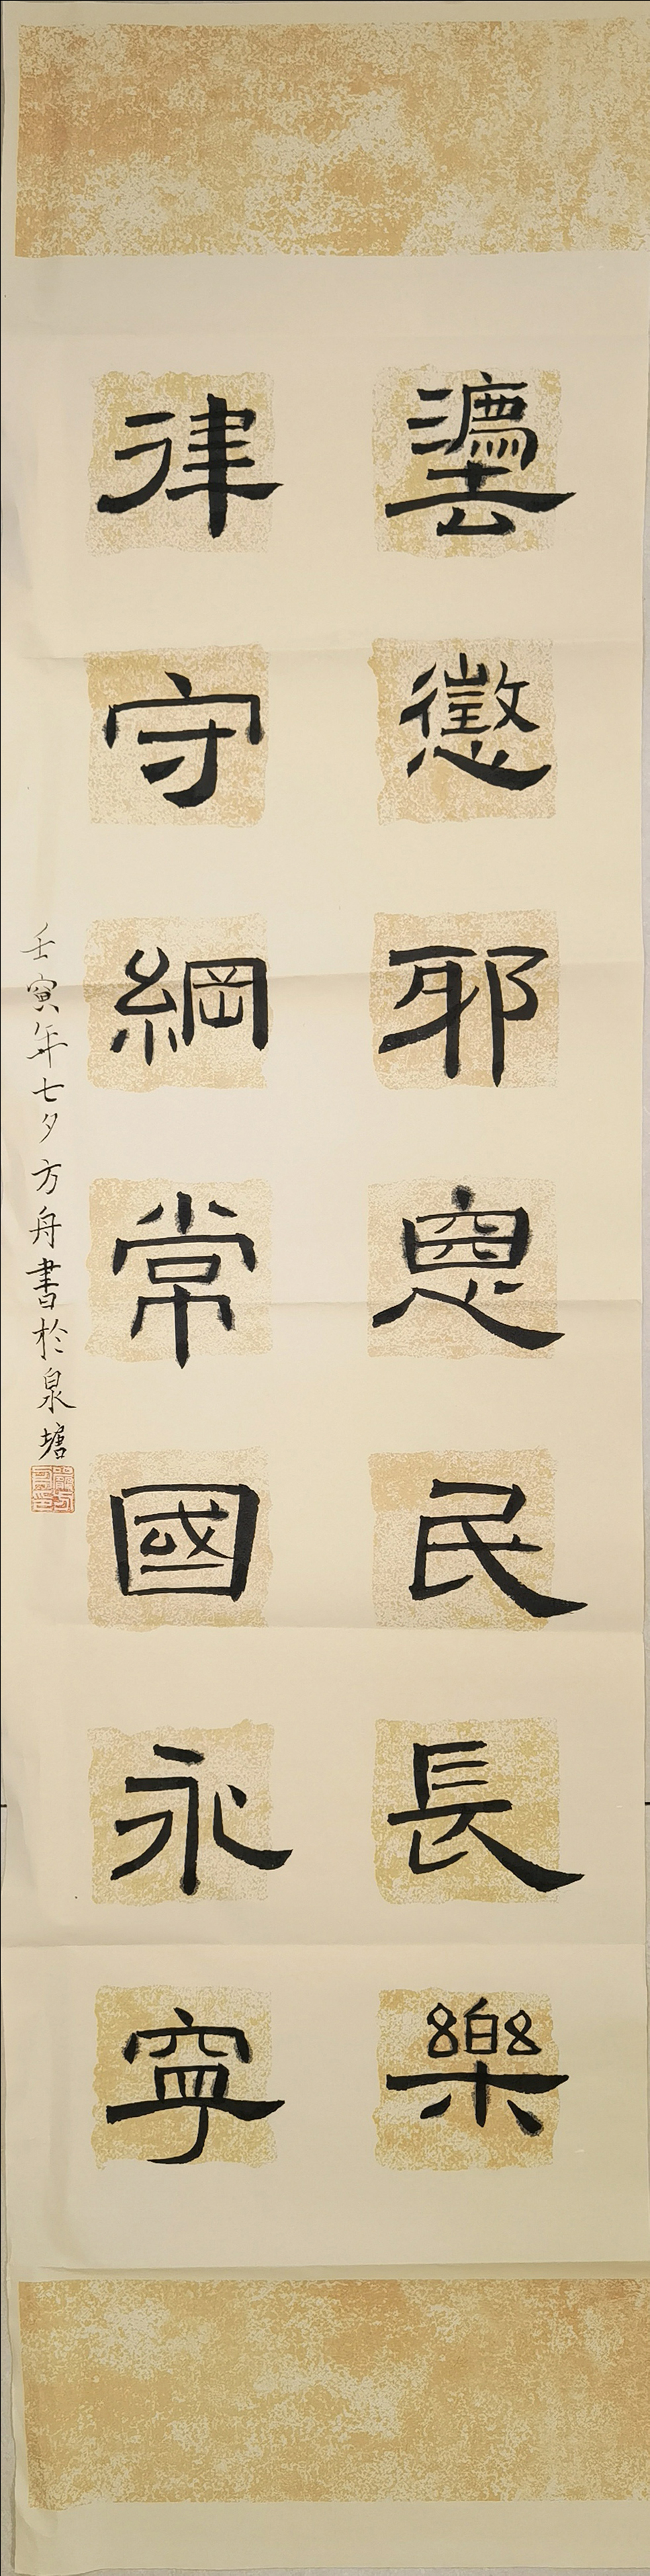 灋懲邪恖民長樂
律守綱常國永寧
壬寅年七夕方舟書於泉塘